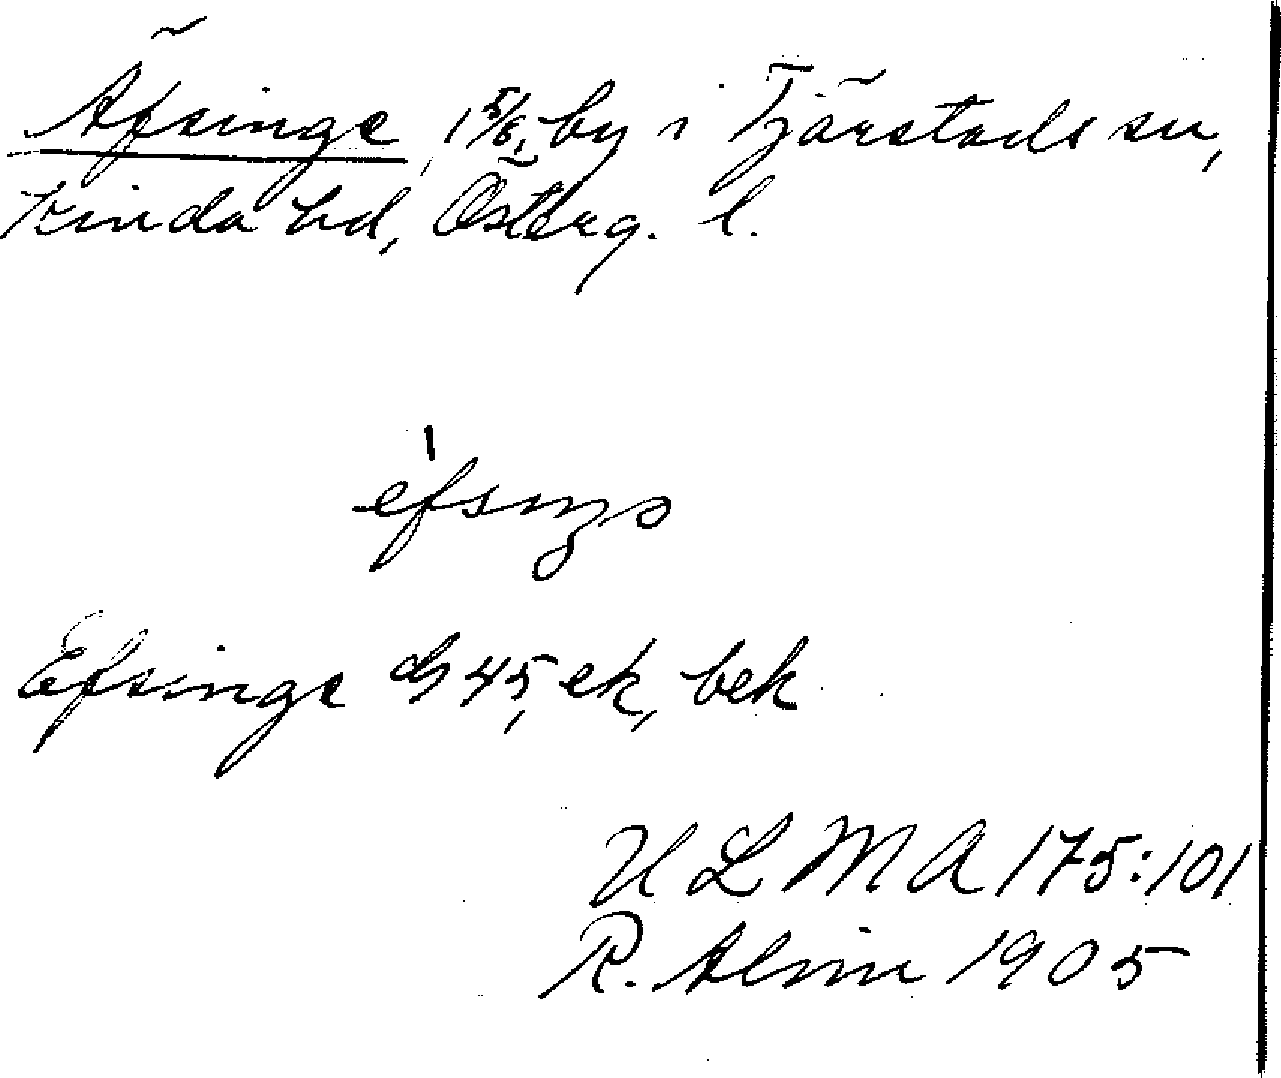 Äfsinge, 1 5/6, by i Tjärstads sn,
Kinda hd, Österg. l.
èfsiŋə
Efsinge GS 45, ek, bek
ULMA 175:101
R. Almin 1905